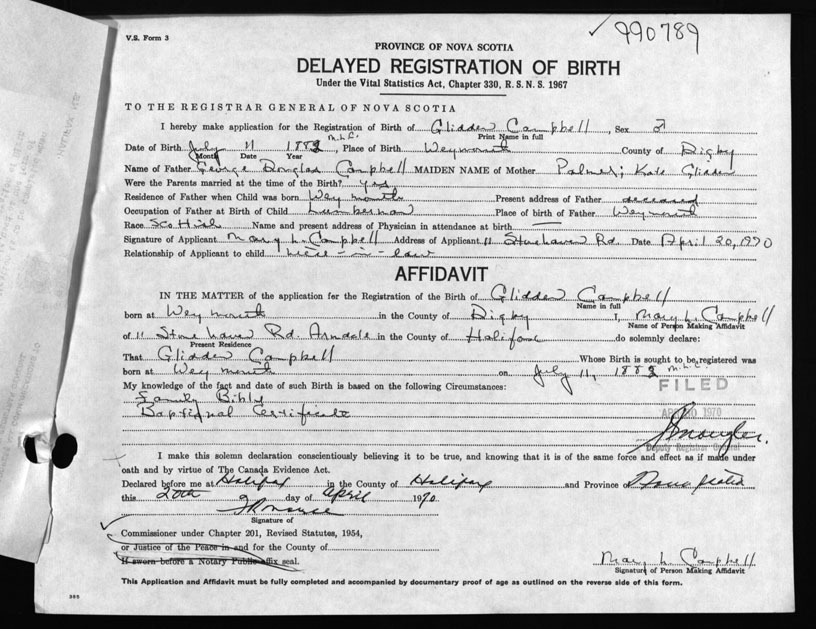 990789
V.S. Form 3
PROVINCE OF NOVA SCOTIA
DELAYED REGISTRATION OF BIRTH
Under the Vital Statistics Act, Chapter 330, R. S. N. S. 1967
TO THE REGISTRAR GENERAL OF NOVA SCOTIA
I hereby make application for the Registration of Birth of Glidden Campbell, Sex ♂
Print Name in full
M.L.C.
Date of Birth July 11 1882, Place of Birth Weymouth County of Digby
Month Date Year
Name of Father George Douglas Campbell MAIDEN NAME of Mother Palmer; Kate Glidden
Were the Parents married at the time of the Birth? yes
Residence of Father when Child was born Weymouth Present address of Father deceased
Occupation of Father at Birth of Child Lumberman Place of birth of Father Weymouth
Race Scottish Name and present address of Physician in attendance at birth
Signature of Applicant Mary L. Campbell Address of Applicant 11 Stonehaven Rd. Date April 20, 1970
Relationship of Applicant to child niece-in-law
AFFIDAVIT
IN THE MATTER of the application for the Registration of the Birth of Glidden Campbell
Name in full
born at Weymouth in the County of Digby I, Mary L. Campbell
Name of Person Making Affidavit
of 11 Stonehaven Rd. Armdale in the County of Halifax do solemnly declare:
Present Residence
That Glidden Campbell Whose Birth is sought to be registered was
born at Weymouth on July 11, 1882 M.L.C.
My knowledge of the fact and date of such Birth is based on the following Circumstances:
FILED
Family Bible
Baptismal Certificate
APR 1970
Deputy Registrar General
I make this solemn declaration conscientiously believing it to be true, and knowing that it is of the same force and effect as if made under
oath and by virtue of The Canada Evidence Act.
Declared before me at Halifax in the County of Halifax and Province of Nova Scotia
this 20th day of April 1970
Signature of
Commissioner under Chapter 201, Revised Statutes, 1954,
or Justice of the Peace in and for the County of
If sworn before a Notary Public affix seal.
Mary L. Campbell
Signature of Person Making Affidavit
This Application and Affidavit must be fully completed and accompanied by documentary proof of age as outlined on the reverse side of this form.